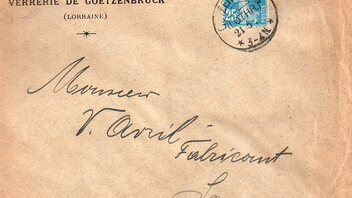 VERRERIE DE GOETZENBRUCK
(LORRAINE)
25
21
* 3-4N *
Monsieur
V. Avril
Fabricant